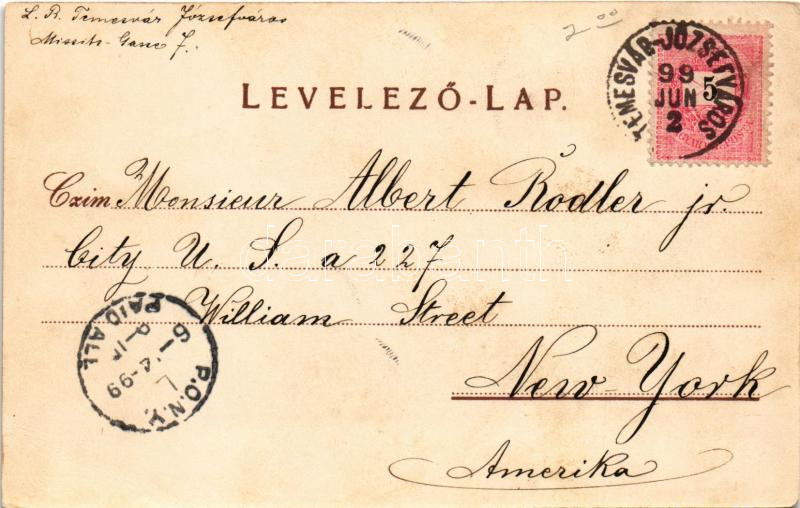 L. R. Temesvár Józsefváros
Missits-Gasse 7.
2 00
TEMESVÁR-JÓZSEFVÁROS
99
JUN
2
5
LEVELEZŐ-LAP.
Czim Monsieur Albert Rodler jr.
City U. S. a 227
William Street
New-York
Amerika
P.O.N.Y.
PAID ALL
99
darabanth